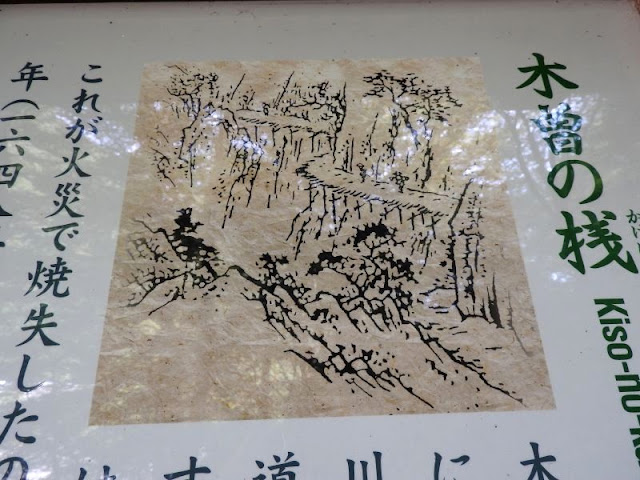 木曽の桟
かけ
Kiso-no-ka
木
に
川
道
す
は
これが火災で焼失したの
年(一六四八